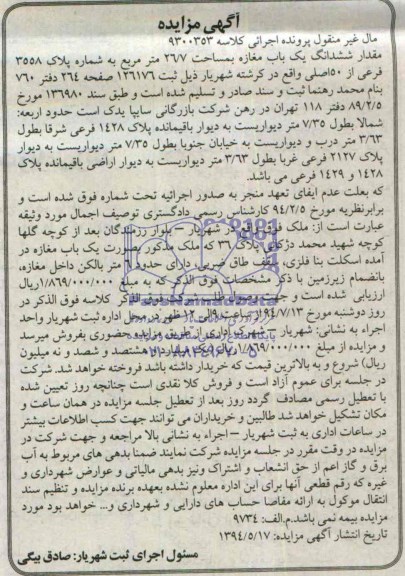 آگهی مزایده
مال غیر منقول پرونده اجرائی کلاسه ۹۳۰۰۳۵۳
مقدار ششدانگ یک باب مغازه بمساحت ۲۶/۷ متر مربع به شماره پلاک ۳۵۵۸
فرعی از ۵۰اصلی واقع در کرشته شهریار ذیل ثبت ۱۲۶۱۷۶ صفحه ۲۶۴ دفتر ۷۶۰
بنام محمد رهنما ثبت و سند صادر و تسلیم شده است و طبق سند ۱۳۶۹۸۰ مورخ
۸۹/۲/۵ دفتر ۱۱۸ تهران در رهن شرکت بازرگانی سایپا یدک است حدود اربعه:
شمالا بطول ۷/۳۵ متر دیواریست به دیوار باقیمانده پلاک ۱۴۲۸ فرعی شرقا بطول
۳/۶۳ متر درب و دیواریست به خیابان جنوبا بطول ۷/۳۵ متر دیواریست به دیوار
پلاک ۲۱۲۷ فرعی غربا بطول ۳/۶۳ متر دیواریست به دیوار اراضی باقیمانده پلاک
۱۴۲۸ و ۱۴۲۹ فرعی می باشد.
که بعلت عدم ایفای تعهد منجر به صدور اجرائیه تحت شماره فوق شده است و
برابرنظریه مورخ ۹۴/۲/۵ کارشناس رسمی دادگستری توصیف اجمال مورد وثیقه
عبارت است از: ملک فوق واقع در شهریار – بلوار رزمندگان بعد از کوچه گلها
کوچه شهید محمد دژکام پلاک ۳۹ که ملک مذکور بصورت یک باب مغازه در
آمده اسکلت بنا فلزی، سقف طاق ضربی، دارای حدود ۶ متر بالکن داخل مغازه،
بانضمام زیرزمین با ذکر مشخصات فوق الذکر که به مبلغ ۱/۸۶۹/۰۰۰/۰۰۰ریال
ارزیابی شده است و جهت وصول طلب فوق الذکر کلاسه فوق الذکر در
روز دوشنبه مورخ ۹۴/۷/۱۳ از ساعت ۹الی ۱۲ظهر در محل اداره ثبت شهریار واحد
اجراء به نشانی: شهریار – شهرک اداری از طریق مزایده حضوری بفروش میرسد
و مزایده از مبلغ ۱/۸۶۹/۰۰۰/۰۰۰ریال (یک میلیارد و هشتصد و شصد و نه میلیون
ریال) شروع و به بالاترین قیمت که خریدار داشته باشد فروخته خواهد شد. شرکت
در جلسه برای عموم آزاد است و فروش کلا نقدی است چنانچه روز تعیین شده
با تعطیل رسمی مصادف گردد روز بعد از تعطیل جلسه مزایده در همان ساعت و
مکان تشکیل خواهد شد طالبین و خریداران می توانند جهت کسب اطلاعات بیشتر
در ساعات اداری به ثبت شهریار – اجراء به نشانی بالا مراجعه و جهت شرکت در
مزایده در وقت مقرر در جلسه مزایده شرکت نمایند ضمنا بدهی های مربوط به آب
برق و گاز اعم از حق انشعاب و اشتراک ونیز بدهی مالیاتی و عوارض شهرداری و
غیره که رقم قطعی آنها برای این اداره معلوم نشده بعهده برنده مزایده و تنظیم سند
انتقال موکول به ارائه مفاصا حساب های دارایی و شهرداری و... خواهد بود مورد
مزایده بیمه نمی باشد.م.الف: ۹۷۳۴
تاریخ انتشار آگهی مزایده: ۱۳۹۴/۵/۱۷
مسئول اجرای ثبت شهریار: صادق بیگی